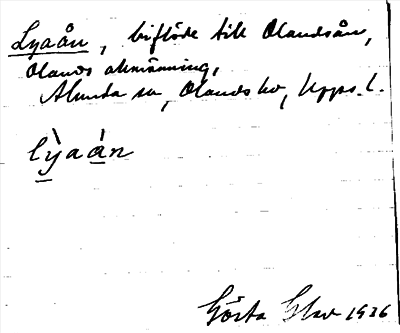 Lyaån, biflöde till Olandsån,
Olands allmänning,
Alunda sn, Olands hd, Upps. l.
lỳaån
Gösta 1936